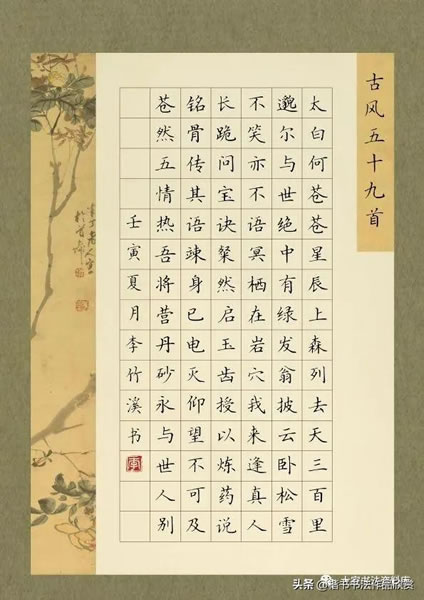 古风五十九首
太白何苍苍星辰上森列去天三百里
邈尔与世绝中有绿发翁披云卧松雪
不笑亦不语冥栖在岩穴我来逢真人
长跪问宝诀粲然启玉齿授以炼药说
铭骨传其语竦身已电灭仰望不可及
苍然五情热吾将营丹砂永与世人别
壬寅夏月李竹溪书
头条 @楷书书法作品欣赏